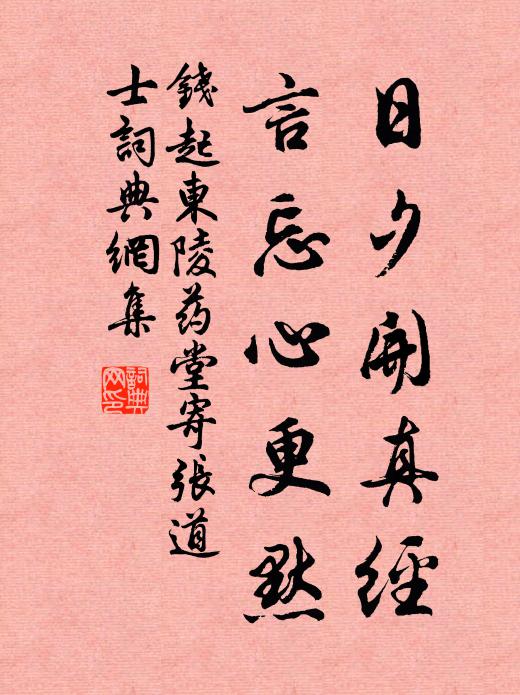 日夕開真經
言忘心更默
錢起東陵药堂寄張道
士詞典網集
詞典
网印